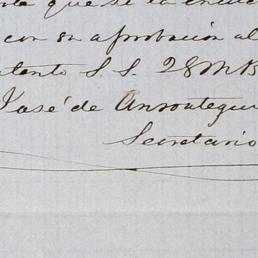 que se la
con su aprobacion al
atento S. S. 2 B M B
José de Ansoategui
Secretario